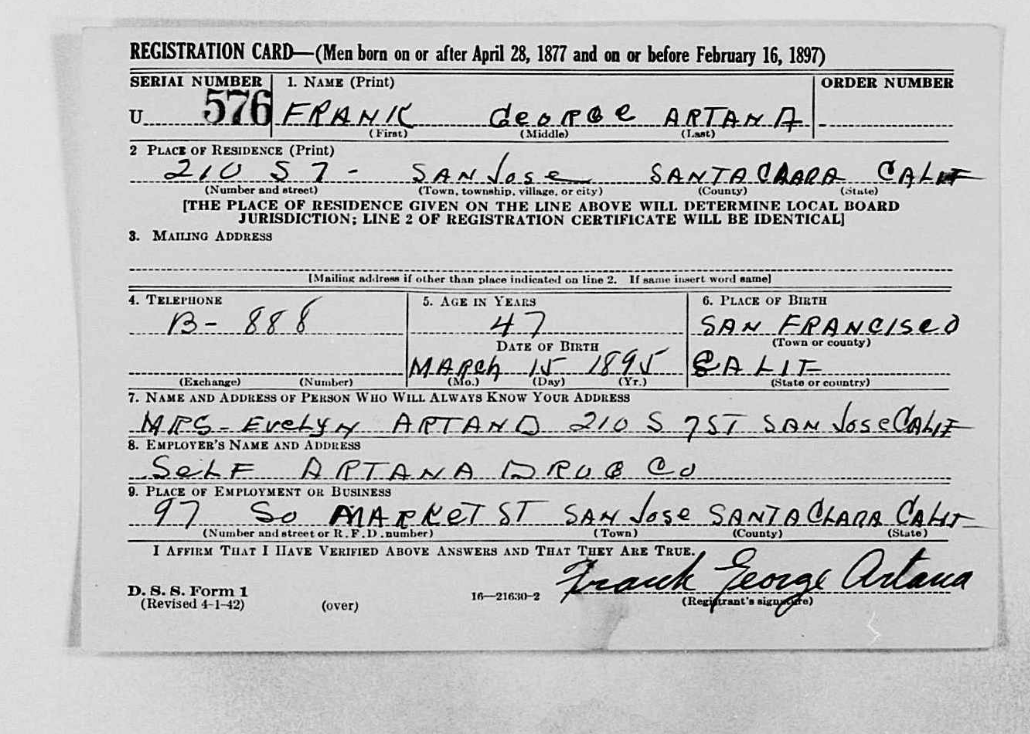 REGISTRATION CARD—(Men born on or after April 28, 1877 and on or before February 16, 1897)
SERIAL NUMBER 1. NAME (Print) ORDER NUMBER
U 576 FRANK GEORGE ARTANA
(First) (Middle) (Last)
2 PLACE OF RESIDENCE (Print)
210 S 7 - SAN Jose SANTA CLARA CALIF
(Number and street) (Town, township, village, or city) (County) (State)
[THE PLACE OF RESIDENCE GIVEN ON THE LINE ABOVE WILL DETERMINE LOCAL BOARD
JURISDICTION; LINE 2 OF REGISTRATION CERTIFICATE WILL BE IDENTICAL]
3. MAILING ADDRESS
[Mailing address if other than place indicated on line 2. If same insert word same]
4. TELEPHONE 5. AGE IN YEARS 6. PLACE OF BIRTH
B- 888 47 SAN FRANCISCO
DATE OF BIRTH (Town or county)
MARCH 15 1895 CALIF
(Exchange) (Number) (Mo.) (Day) (Yr.) (State or country)
7. NAME AND ADDRESS OF PERSON WHO WILL ALWAYS KNOW YOUR ADDRESS
MRS- EVELYN ARTANA 210 S 7 ST SAN Jose CALIF
8. EMPLOYER'S NAME AND ADDRESS
SELF ARTANA DRUG CO
9. PLACE OF EMPLOYMENT OR BUSINESS
97 So MARKET ST SAN Jose SANTA CLARA CALIF
(Number and street or R. F. D. number) (Town) (County) (State)
I AFFIRM THAT I HAVE VERIFIED ABOVE ANSWERS AND THAT THEY ARE TRUE.
Frank George Artana
D. S. S. Form 1
(Revised 4-1-42) (over) 16—21630-2 (Registrant's signature)